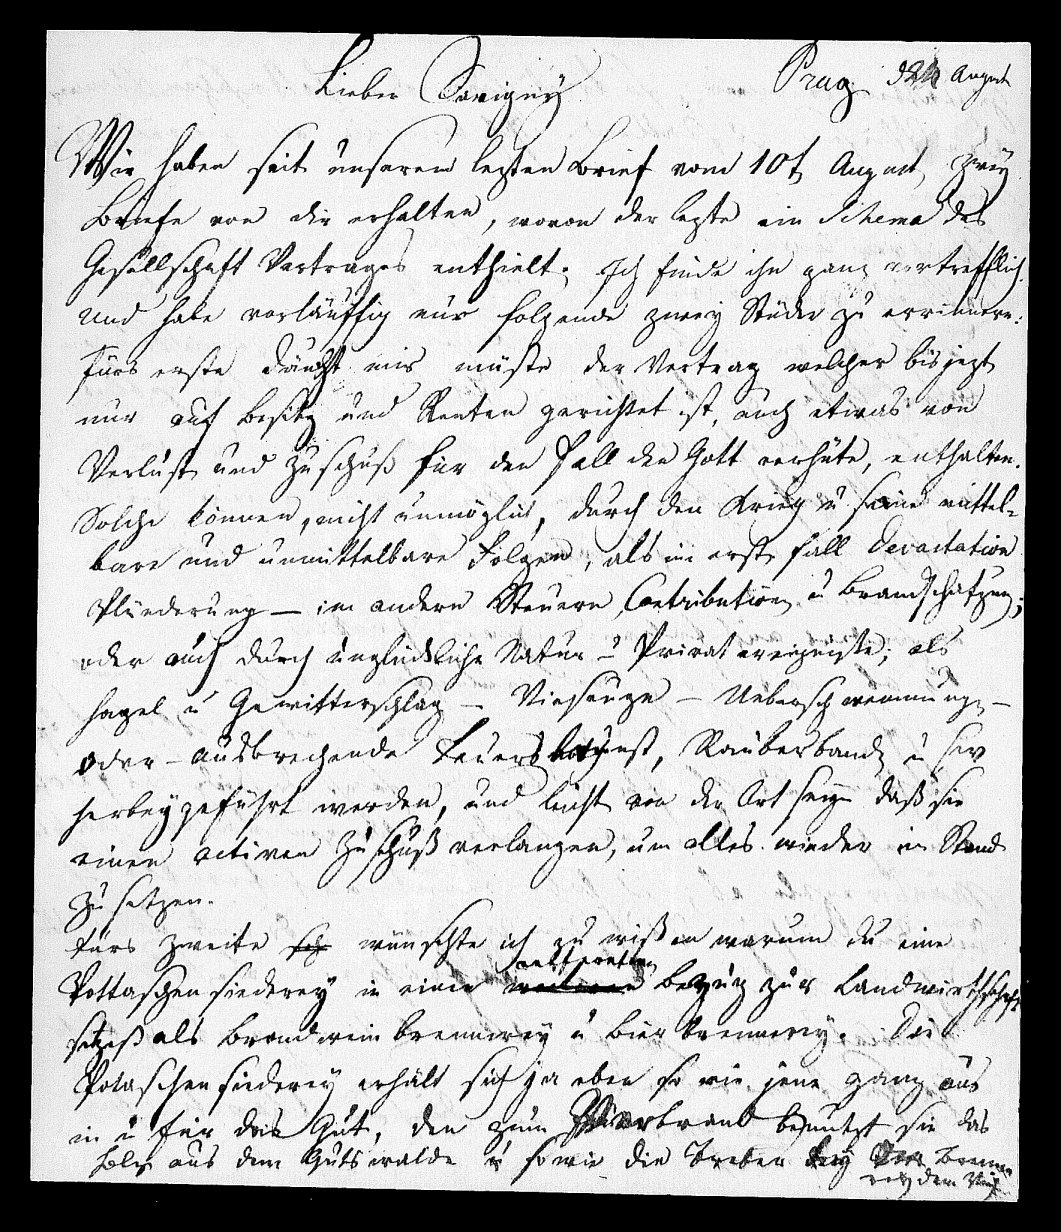 Prag d 24 August
Lieber Savigny
Wir haben seit unserem lezten Brief vom 10t August zwey
Briefe von dir erhalten, wovon der lezte ein Schema des
Gesellschaft Vertrages enthielt. Ich finde ihn ganz vortrefflich.
und habe vorläuffig nur folgende zwey Stücke zu errinnern:
Fürs erste däucht mir müste der Vertrag welcher bis jezt
nur auf Besitz und Renten gerichtet ist, auch etwas von
Verlust und Zuschuß für den Fall den Gott verhüte, enthalten.
Solche können, nicht unmöglich, durch den Krieg u seine mittel-
bare und unmittelbare Folgen, als im erste Fall Devastation
Plünderung — im andern Steuern, Contribution u Brandschatzung;
oder auch durch unglückliche Natur u Privat ereigniße; als
Hagel u Gewitterschlag — Viehseuge — Ueberschwemmung —
oder — ausbrechende Feuersbrunst, Räuberbande u
herbeygeführt werden, und leicht von der Art seyn daß sie
einen activen Zuschuß verlangen, um alles wieder in Stand
zu setzen.
Fürs zweite wünschte ich zu wißen warum du eine
Pottaschensiederey in einen bezug zur Landwirthschaft
setzest als Brandwein brennerey u Bier brennerey. Die
Potaschensiederey erhält sich ja eben so wie jene ganz aus
in u für das Gut, den zum Verbrand benutzt sie das
Holz aus dem Gutswalde u sowie die Treber bey
bey dem Vieh